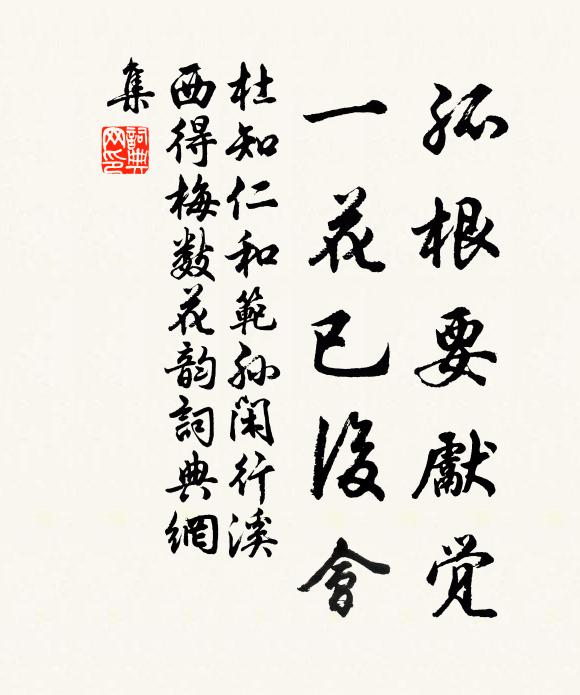 孤根要獻觉
一花已後會
杜知仁和範孙闲行溪
西得梅數花韵詞典網
集
詞典网印